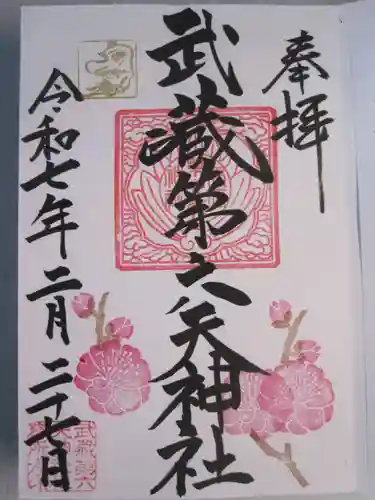 奉拝
武蔵第六天神社
令和七年二月二十七日